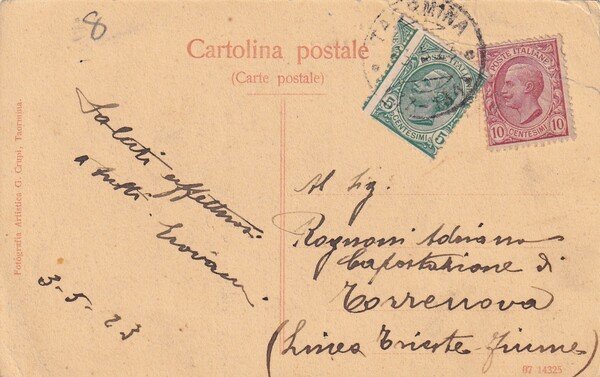 8
Cartolina postale
(Carte postale)
TAORMINA
POSTE ITALIANE
10 CENTESIMI 10
5 CENTESIMI 5
Saluti affettuosi
a tutti. Giovanni
3-5-23
Al Sig.
Rognoni Adriano
Capostazione di
Torrenova
(Linea Trieste-Fiume)
87 14325
Fotografia Artistica G. Crupi, Taormina.